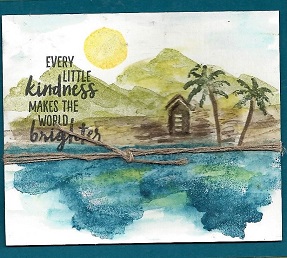 EVERY
LITTLE
kindness
MAKES THE
WORLD
brighter